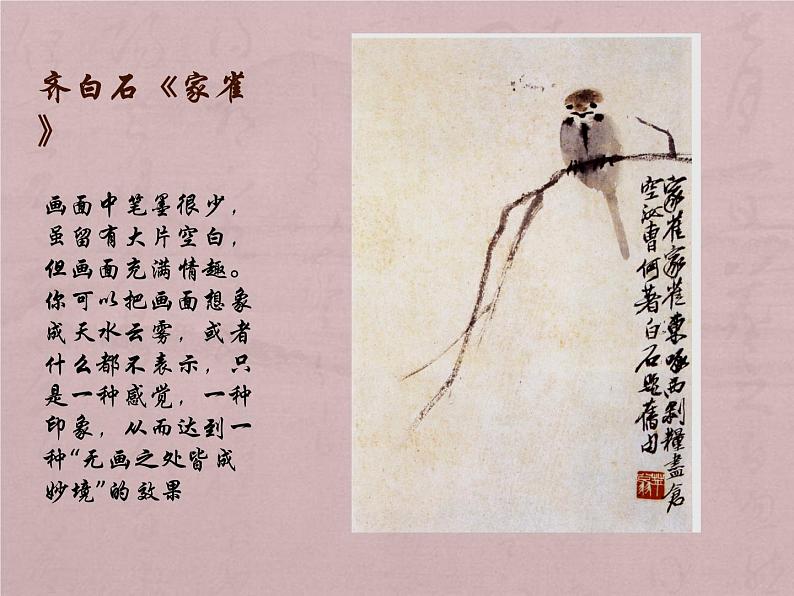 齐白石《家雀
》
画面中笔墨很少，
虽留有大片空白，
但画面充满情趣。
你可以把画面想象
成天水云雾，或者
什么都不表示，只
是一种感觉，一种
印象，从而达到一
种“无画之处皆成
妙境”的效果
家雀家雀東啄西剥糧盡倉
空汝曹何著白石題舊句